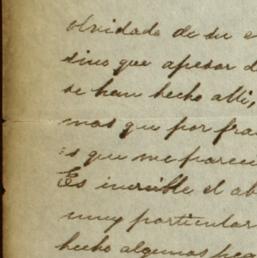 olvidado de su
sino que apesar
se han hecho alli,
mas que por
que me parec
Es increible el ab
muy particular
hecho algunas